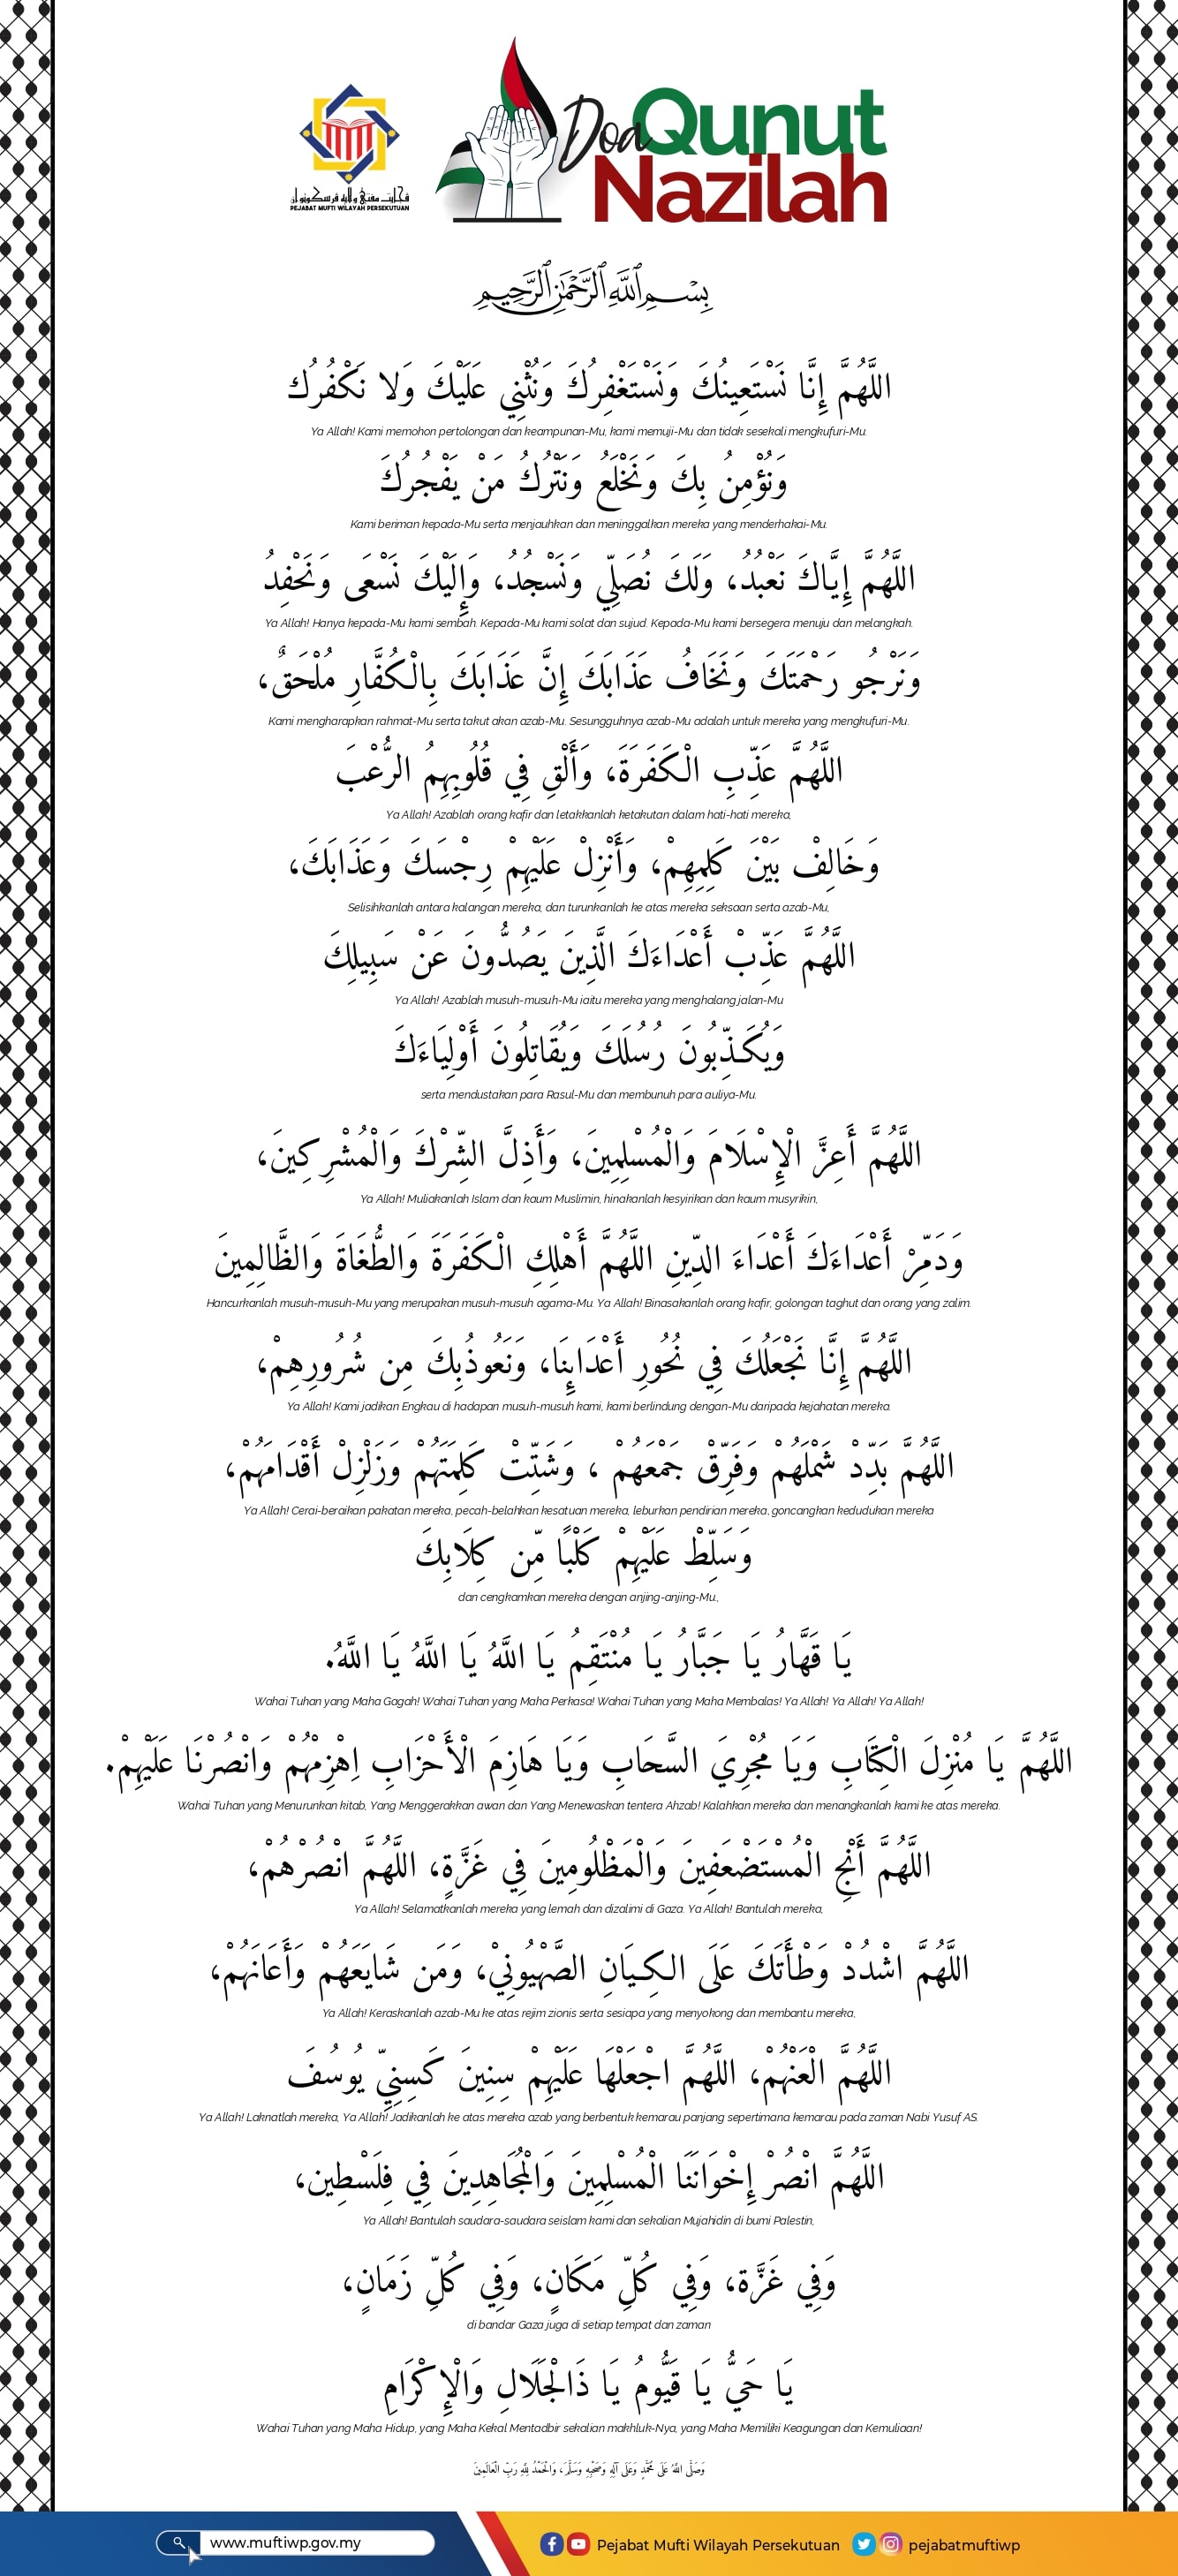 Doa Qunut
Nazilah
ڤجابت مفتي ولايه ڤرسكوتوان
PEJABAT MUFTI WILAYAH PERSEKUTUAN
بِسْمِ ٱللَّهِ ٱلرَّحْمَٰنِ ٱلرَّحِيمِ
اللَّهُمَّ إِنَّا نَسْتَعِينُكَ وَنَسْتَغْفِرُكَ وَنُثْنِي عَلَيْكَ وَلا نَكْفُرُك
Ya Allah! Kami memohon pertolongan dan keampunan-Mu, kami memuji-Mu dan tidak sesekali mengkufuri-Mu.
وَنُؤْمِنُ بِكَ وَنَخْلَعُ وَنَتْرُكُ مَنْ يَفْجُرُكَ
Kami beriman kepada-Mu serta menjauhkan dan meninggalkan mereka yang menderhakai-Mu.
اللَّهُمَّ إِيَّاكَ نَعْبُدُ، وَلَكَ نُصَلِّي وَنَسْجُدُ، وَإِلَيْكَ نَسْعَى وَنَحْفِدُ
Ya Allah! Hanya kepada-Mu kami sembah. Kepada-Mu kami solat dan sujud. Kepada-Mu kami bersegera menuju dan melangkah.
وَنَرْجُو رَحْمَتَكَ وَنَخَافُ عَذَابَكَ إِنَّ عَذَابَكَ بِالْكُفَّارِ مُلْحَقٌ،
Kami mengharapkan rahmat-Mu serta takut akan azab-Mu. Sesungguhnya azab-Mu adalah untuk mereka yang mengkufuri-Mu.
اللَّهُمَّ عَذِّبِ الْكَفَرَةَ، وَأَلْقِ فِي قُلُوبِهِمُ الرُّعْبَ
Ya Allah! Azablah orang kafir dan letakkanlah ketakutan dalam hati-hati mereka,
وَخَالِفْ بَيْنَ كَلِمِهِمْ، وَأَنْزِلْ عَلَيْهِمْ رِجْسَكَ وَعَذَابَكَ،
Selisihkanlah antara kalangan mereka, dan turunkanlah ke atas mereka seksaan serta azab-Mu,
اللَّهُمَّ عَذِّبْ أَعْدَاءَكَ الَّذِينَ يَصُدُّونَ عَنْ سَبِيلِكَ
Ya Allah! Azablah musuh-musuh-Mu iaitu mereka yang menghalang jalan-Mu
وَيُكَذِّبُونَ رُسُلَكَ وَيُقَاتِلُونَ أَوْلِيَاءَكَ
serta mendustakan para Rasul-Mu dan membunuh para auliya-Mu.
اللَّهُمَّ أَعِزَّ الْإِسْلَامَ وَالْمُسْلِمِينَ، وَأَذِلَّ الشِّرْكَ وَالْمُشْرِكِينَ،
Ya Allah! Muliakanlah Islam dan kaum Muslimin, hinakanlah kesyirikan dan kaum musyrikin,
وَدَمِّرْ أَعْدَاءَكَ أَعْدَاءَ الدِّينِ اللَّهُمَّ أَهْلِكِ الْكَفَرَةَ وَالطُّغَاةَ وَالظَّالِمِينَ
Hancurkanlah musuh-musuh-Mu yang merupakan musuh-musuh agama-Mu. Ya Allah! Binasakanlah orang kafir, golongan taghut dan orang yang zalim.
اللَّهُمَّ إِنَّا نَجْعَلُكَ فِي نُحُورِ أَعْدَايِنَا، وَنَعُوذُبِكَ مِن شُرُورِهِمْ،
Ya Allah! Kami jadikan Engkau di hadapan musuh-musuh kami, kami berlindung dengan-Mu daripada kejahatan mereka.
اللَّهُمَّ بَدِّدْ شَمْلَهُمْ وَفَرِّقْ جَمْعَهُمْ ، وَشَتِّتْ كَلِمَتَهُمْ وَزَلْزِلْ أَقْدَامَهُمْ،
Ya Allah! Cerai-beraikan pakatan mereka, pecah-belahkan kesatuan mereka, leburkan pendirian mereka, goncangkan kedudukan mereka
وَسَلِّطْ عَلَيْهِمْ كَلْبًا مِّن كِلَابِكَ
dan cengkamkan mereka dengan anjing-anjing-Mu.,
يَا قَهَّارُ يَا جَبَّارُ يَا مُنْتَقِمُ يَا اللَّهُ يَا اللَّهُ يَا اللَّهُ.
Wahai Tuhan yang Maha Gagah! Wahai Tuhan yang Maha Perkasa! Wahai Tuhan yang Maha Membalas! Ya Allah! Ya Allah! Ya Allah!
اللَّهُمَّ يَا مُنْزِلَ الْكِتَابِ وَيَا مُجْرِيَ السَّحَابِ وَيَا هَازِمَ الْأَحْزَابِ اِهْزِمْهُمْ وَانْصُرْنَا عَلَيْهِمْ.
Wahai Tuhan yang Menurunkan kitab, Yang Menggerakkan awan dan Yang Menewaskan tentera Ahzab! Kalahkan mereka dan menangkanlah kami ke atas mereka.
اللَّهُمَّ أَنْجِ الْمُسْتَضْعَفِينَ وَالْمَظْلُومِينَ فِي غَزَّةٍ، اللَّهُمَّ انْصُرْهُمْ،
Ya Allah! Selamatkanlah mereka yang lemah dan dizalimi di Gaza. Ya Allah! Bantulah mereka,
اللَّهُمَّ اشْدُدْ وَطْأَتَكَ عَلَى الكِيَانِ الصَّهْيُونِيْ، وَمَن شَايَعَهُمْ وَأَعَانَهُمْ،
Ya Allah! Keraskanlah azab-Mu ke atas rejim zionis serta sesiapa yang menyokong dan membantu mereka,
اللَّهُمَّ الْعَنْهُمْ، اللَّهُمَّ اجْعَلْهَا عَلَيْهِمْ سِنِينَ كَسِنِيِّ يُوسُفَ
Ya Allah! Laknatlah mereka, Ya Allah! Jadikanlah ke atas mereka azab yang berbentuk kemarau panjang sepertimana kemarau pada zaman Nabi Yusuf AS.
اللَّهُمَّ انْصُرْ إِخْوَانَنَا الْمُسْلِمِينَ وَالْمُجَاهِدِينَ فِي فِلَسْطِين،
Ya Allah! Bantulah saudara-saudara seislam kami dan sekalian Mujahidin di bumi Palestin,
وَفِي غَزَّة، وَفِي كُلِّ مَكَانٍ، وَفِي كُلِّ زَمَانٍ،
di bandar Gaza juga di setiap tempat dan zaman
يَا حَيُّ يَا قَيُّومُ يَا ذَالْجَلَالِ وَالْإِكْرَامِ
Wahai Tuhan yang Maha Hidup, yang Maha Kekal Mentadbir sekalian makhluk-Nya, yang Maha Memiliki Keagungan dan Kemuliaan!
وَصَلَّى اللهُ عَلَى مُحَمَّدٍ وَعَلَى آلِهِ وَصَحْبِهِ وَسَلَّمَ، وَالْحَمْدُ لِلهِ رَبِّ الْعَالَمِينَ
www.muftiwp.gov.my
Pejabat Mufti Wilayah Persekutuan
pejabatmuftiwp